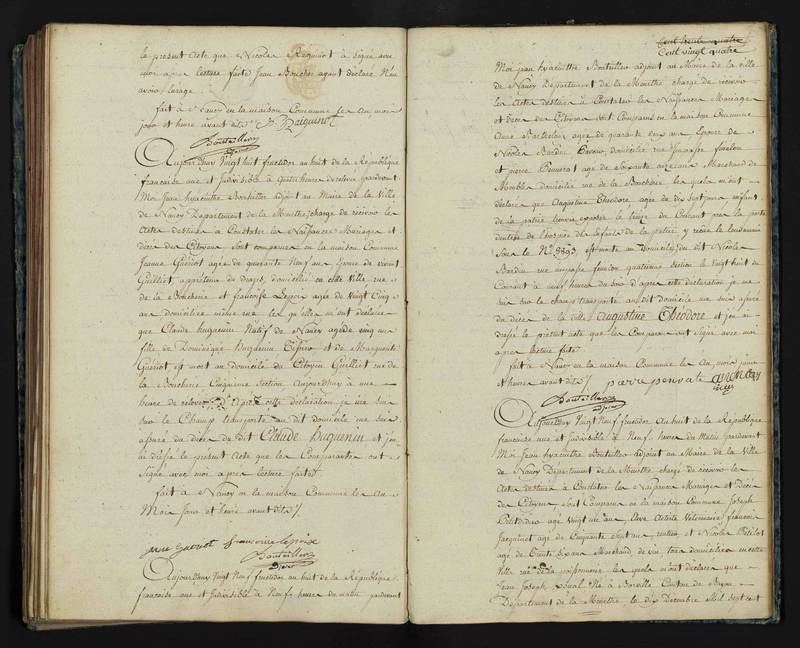 le present acte que Nicole Raguinot à signé avec
moi apres lecture faite Jean Boucher ayant déclaré n'en
avoir l'usage.
fait à Nancy en la maison Commune les an, mois
jour et heure avant dits / Raiguinot
Bouteiller
adjoint
Aujourdhuy Vingt huit fructidor an huit de la République
française une et Indivisible à quatre heures de relevée pardevant
Moi Jean hyacinthe Bouteiller adjoint au Maire de la Ville
de Nancy Département de la Meurthe, chargé de recevoir les
Actes destinés à Constater les Naissances Mariages et
décès des Citoyens sont comparues en la maison Commune
Jeanne Gueriot agée de quarante neuf ans Epouse de
Guilliot, appréteur de draps, domicilié en cette Ville rue
de la Boucherie et françoise Lepoix agée de Vingt Cinq
ans domiciliée même rue les quelles m'ont déclaré
que Claude huguenin Natif de Nancy agé de cinq ans
fille de Dominique huguenin et de Marguerite
Gueriot, est mort au domicile du Citoyen Guilliot rue
de la Boucherie Cinquieme Section Aujourdhuy a une
heure de relevée. D'après cette déclaration je me suis
sur le Champ transporté au dit domicile me suis
assuré du décès du dit Claude Huguenin et j'en
ai dressé le présent Acte que les Comparantes ont
Signé avec moi apres lecture faite
fait à Nancy en la maison Commune les an
Mois Jour et heure avant dits /
Gueriot francoise lepoix
Bouteiller
adjoint
Aujourdhuy Vingt Neuf fructidor an huit de la République
française une et Indivisible à Neuf heures du matin pardevant
Cent trente quatre
Cent vingt quatre
Moi jean hyacinthe Bouteiller adjoint au Maire de la ville
de Nancy Département de la Meurthe chargé de recevoir
les Actes destinés à Constater les Naissances Mariages
et décès des Citoyens sont Comparus en la maison Commune
Anne agée de quarante deux ans Epouse de
Nicolas Bardin domiciliée rue
et pierre agé de Soixante onze ans Marchand de
Meubles domicilié rue de la Boucherie les quels m'ont
déclaré que Augustine Theodore agée de dix sept jours enfant
de la patrie exposée le onze du Courant pres la porte
d'entrée de l'hospice des enfants de la patrie, y reçue le lendemain
sous le N.o 8893, est morte au domicile du dit Nicolas
Bardin rue quatrieme section le Vingt huit du
Courant à neuf heures du soir d'après cette déclaration je me
suis sur le champ transporté au dit domicile me suis assuré
du décès de la dite Augustine Theodore et j'en ai
dressé le présent acte que les Comparans ont Signé avec moi
apres lecture faite
fait à Nancy en la maison Commune les an, mois jour
et heure avant dits /
Bouteiller
adjoint
Aujourdhuy Vingt Neuf fructidor an huit de la République
française une et Indivisible à Neuf heures du Matin pardevant
Moi Jean hyacinthe Bouteiller adjoint au Maire de la Ville
de Nancy Département de la Meurthe chargé de recevoir les
Actes destinés à Constater les Naissances Mariages et Décès
des Citoyens, sont Comparus en la maison Commune Joseph
Petitdidier agé Vingt un ans Artiste Vétérinaire françois
Jacquinot agé de Cinquante Sept ans rentier, et Nicolas
agé de trente dix ans Marchand de vin tous domiciliés en cette
Ville rue de la poissonnerie les quels m'ont déclaré que
Jean Joseph Né à Borville Canton de Bayon
Département de la Meurthe le dix Decembre Mil sept cent